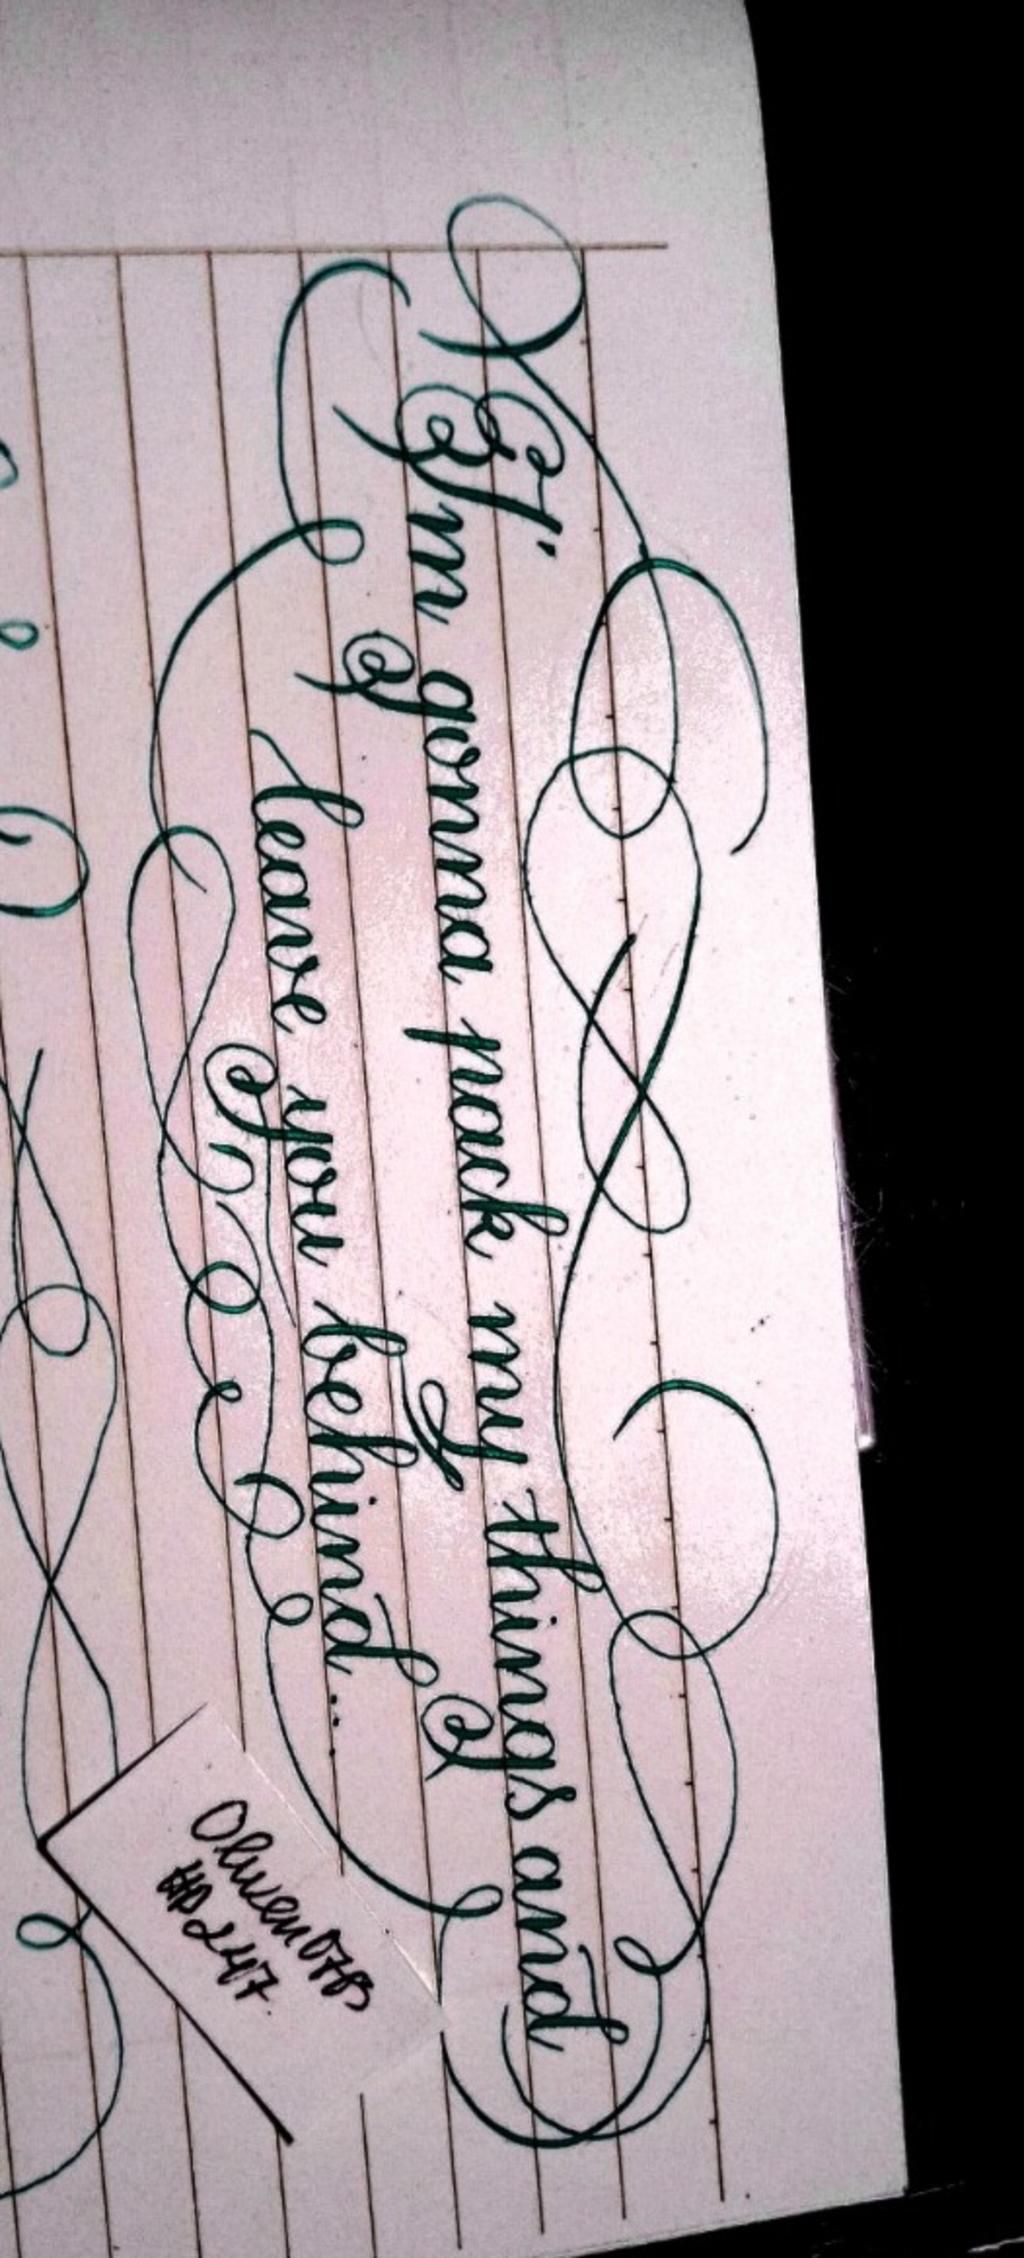 I'm gonna pack my things and
leave you behind...
Olusen0783
HD247